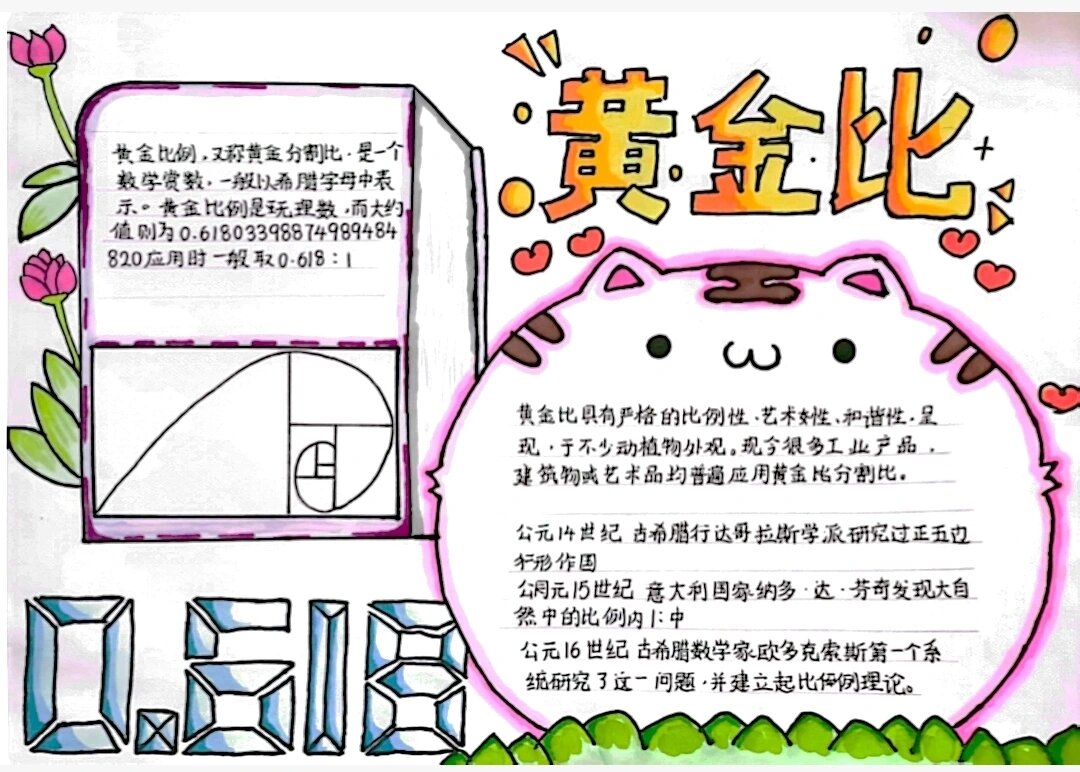 黄金比
黄金比例,又称黄金分割比,是一个
数学常数,一般以希腊字母中表
示。黄金比例是无理数,而大约
值则为0.61803398874989484
820应用时一般取0.618:1
黄金比具有严格的比例性、艺术性、和谐性,呈
现,于不少动植物外观。现今很多工业产品,
建筑物或艺术品均普遍应用黄金比分割比。
公元14世纪 古希腊行达哥拉斯学派研究过正五边
形作图
公元15世纪 意大利国家纳多·达·芬奇发现大自
然中的比例内1:中
公元16世纪 古希腊数学家欧多克索斯第一个系
统研究了这一问题,并建立起比例理论。
0.618